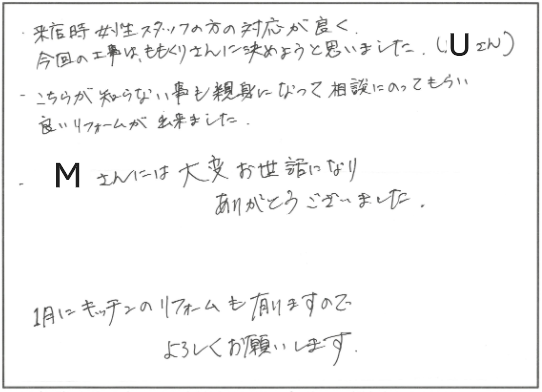 ・来店時 女性スタッフの方の対応が良く、
今回の工事は、ももくりさんに決めようと思いました。(Uさん)
・こちらが知らない事も親身になって相談にのってもらい
良いリフォームが出来ました。
・Mさんには大変お世話になり
ありがとうございました。
1月にキッチンのリフォームも有りますので
よろしくお願いします。